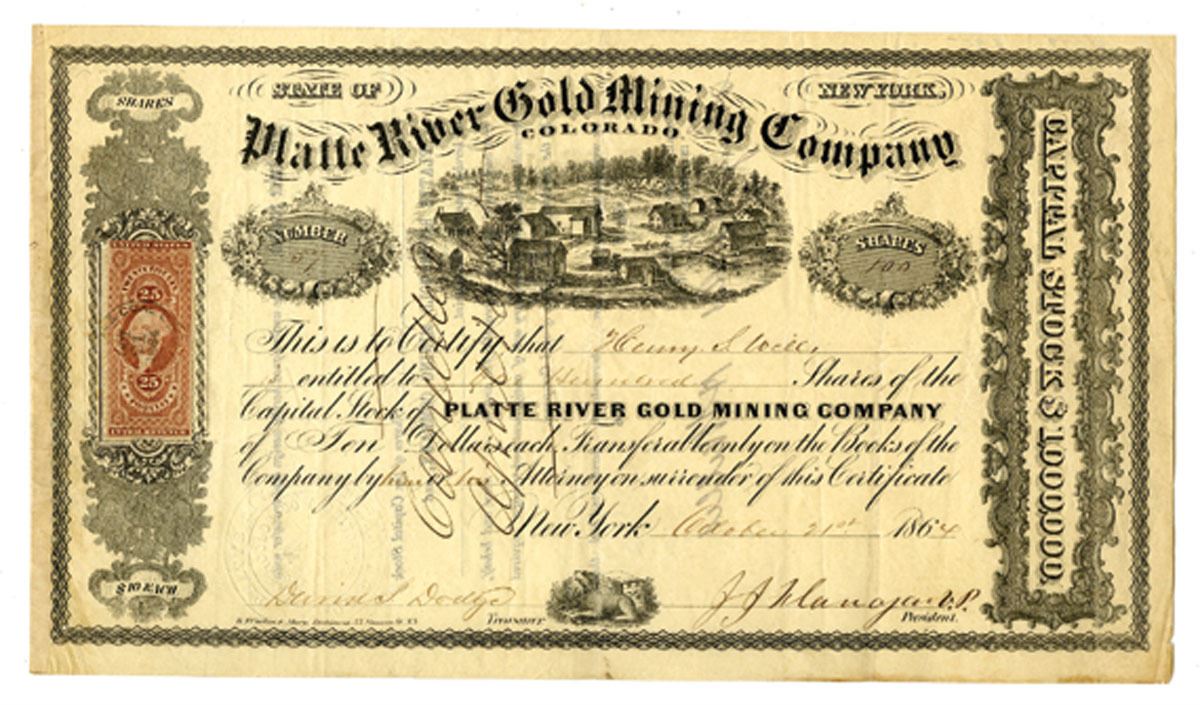 SHARES
STATE OF
NEW YORK,
Platte River Gold Mining Company
COLORADO
NUMBER
SHARES
100
CAPITAL STOCK $1,000,000.
UNITED STATES
25
25
This is to Certify that Henry S. Wells
is entitled to One Hundred Shares of the
Capital Stock of PLATTE RIVER GOLD MINING COMPANY
of Ten Dollars each, Transferable only on the Books of the
Company by him or his Attorney on surrender of this Certificate
New York October 21st 1864
Cancelled
$10 EACH
David S Dodge
Treasurer
V.P.
President.